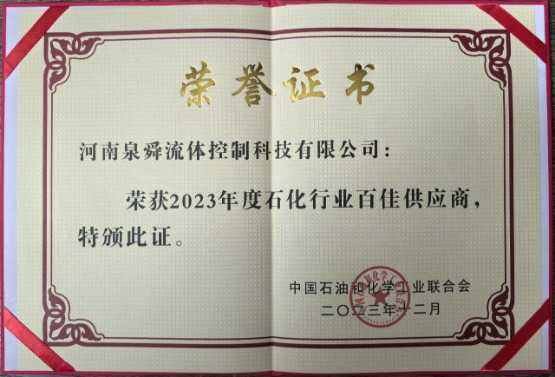 荣誉证书
河南泉舜流体控制科技有限公司：
荣获2023年度石化行业百佳供应商，
特颁此证。
中国石油和化学工业联合会
二〇二三年十二月